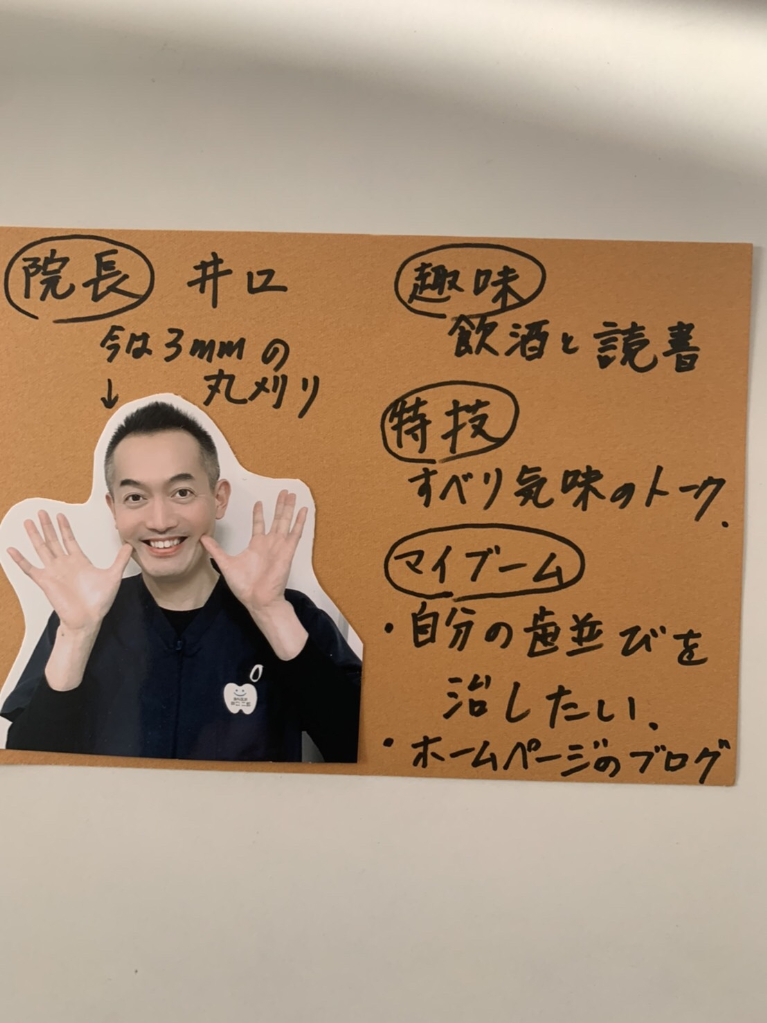 院長 井口
今は3mmの
↓ 丸刈り
趣味
飲酒と読書
特技
すべり気味のトーク.
マイブーム
・自分の歯並びを
治したい.
・ホームページのブログ